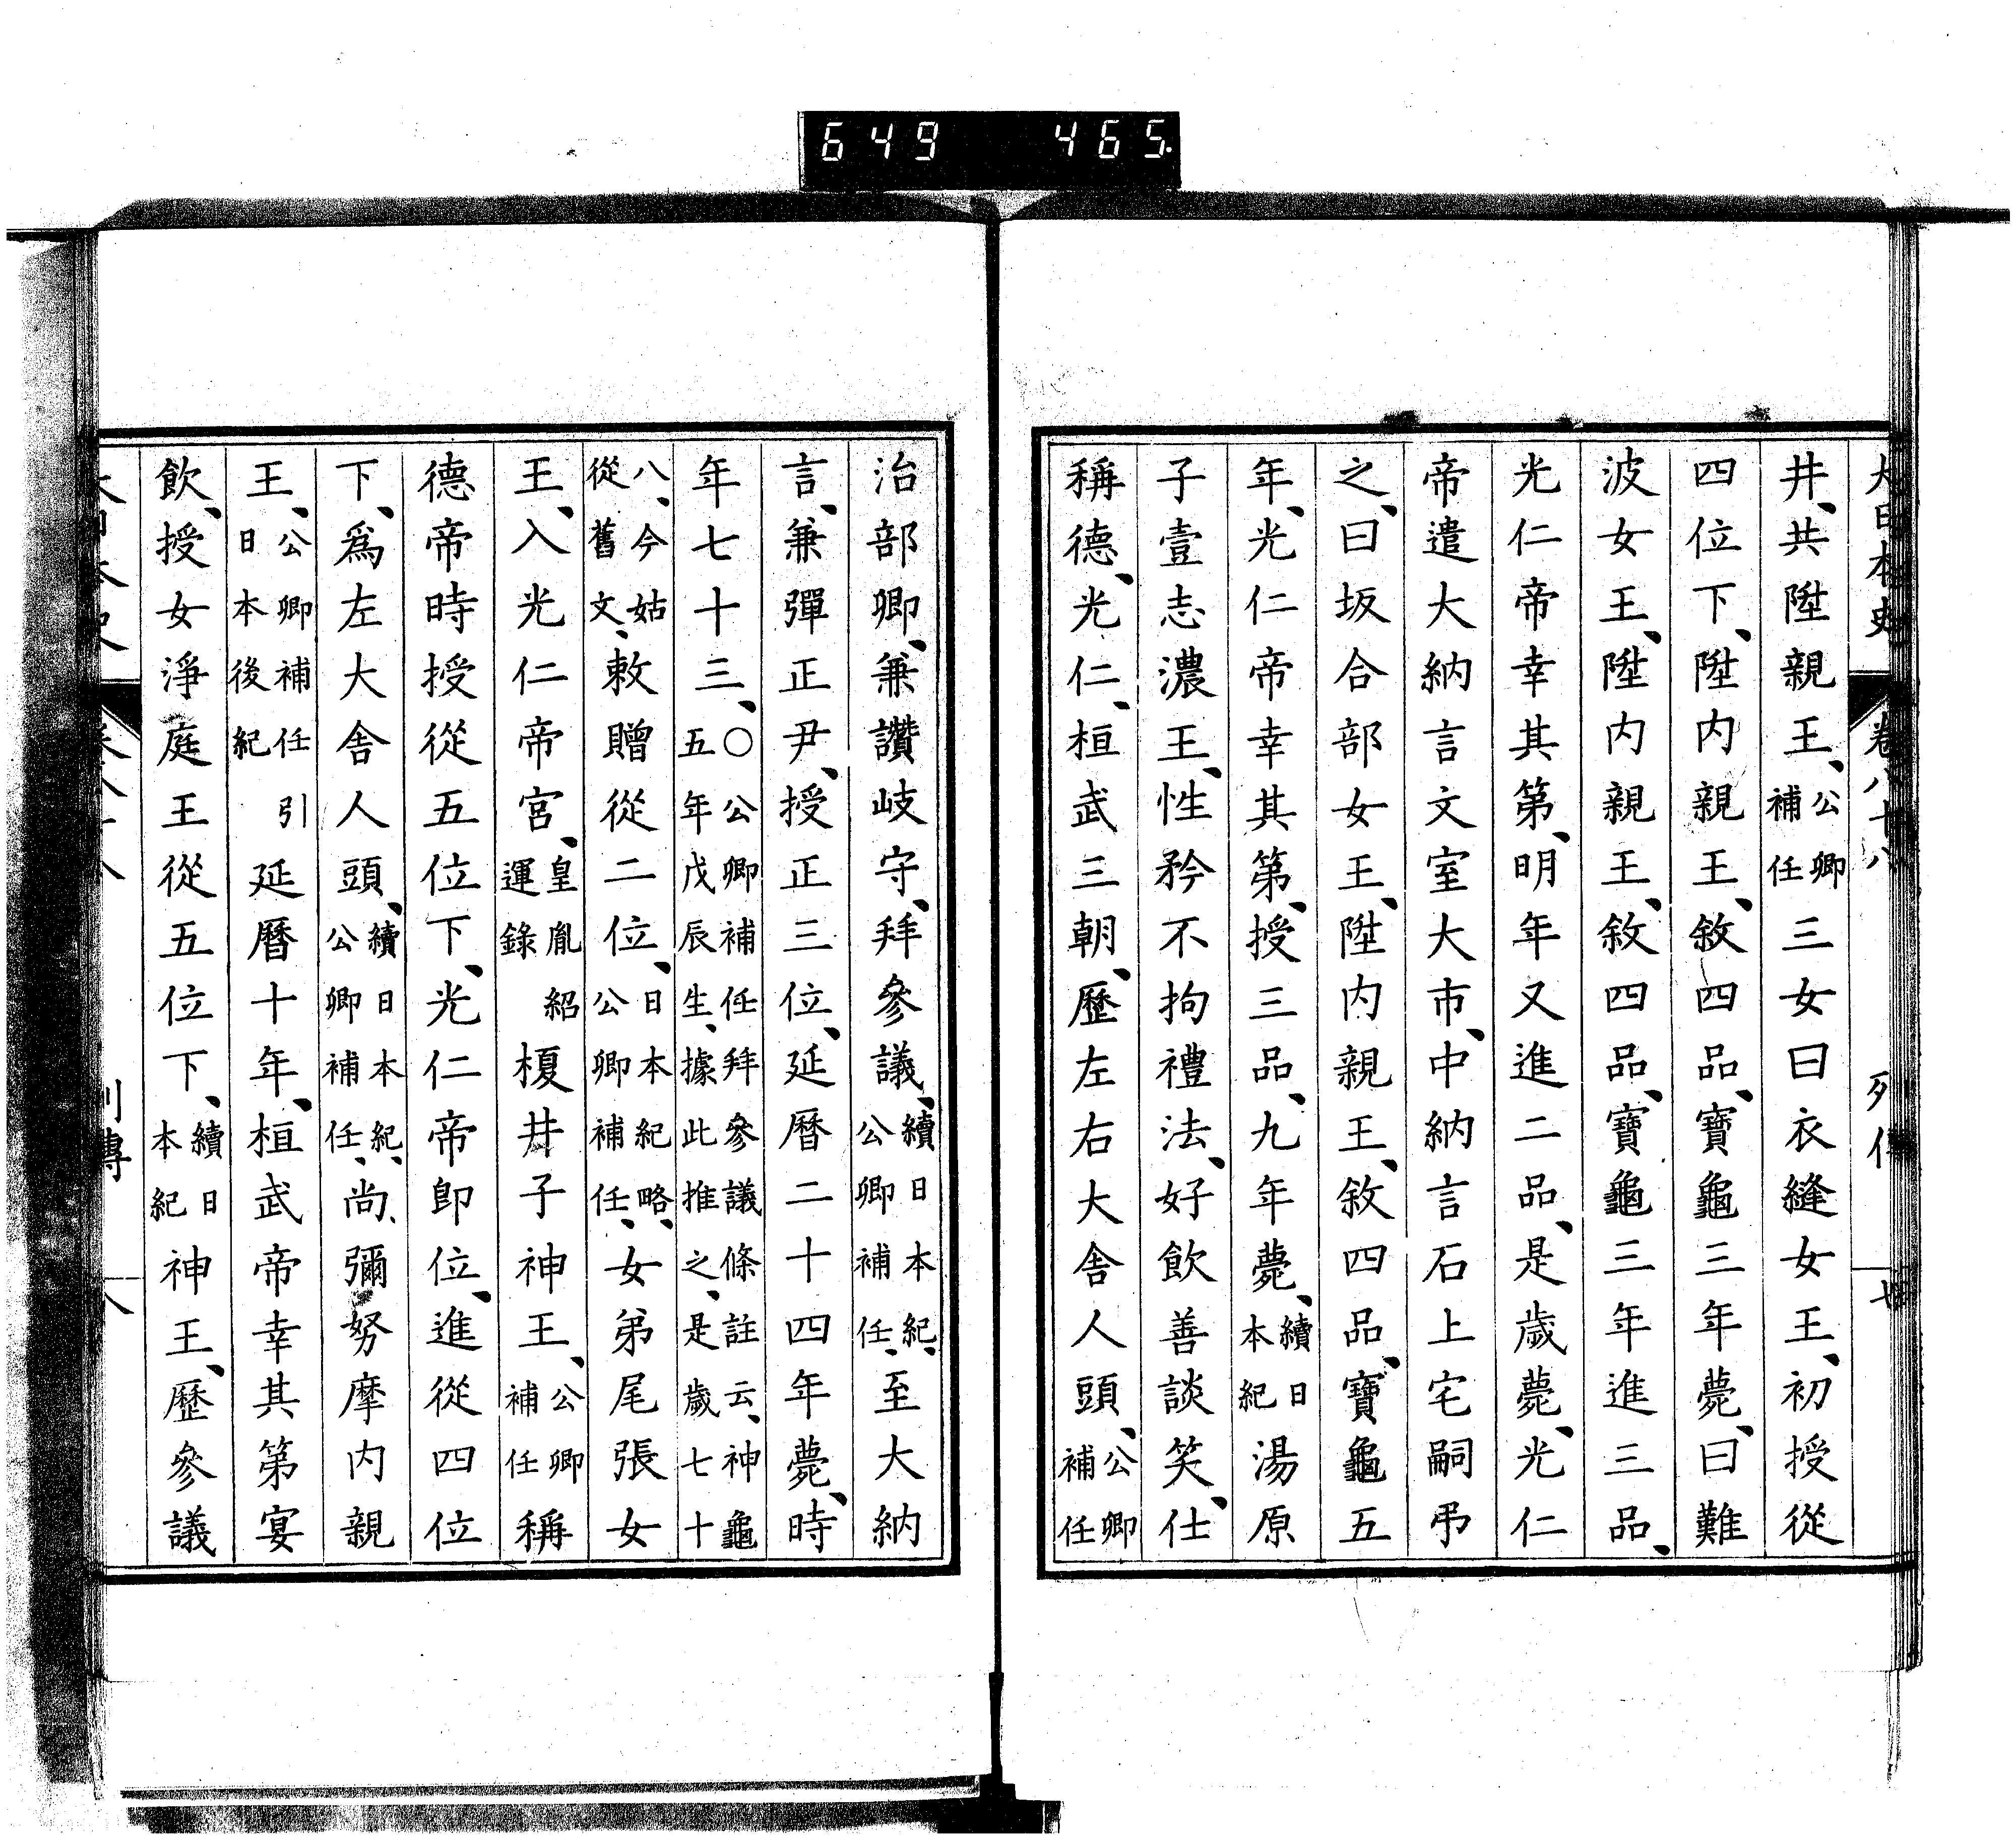 649 465
大日本史 卷八十八 列傳 七
井、共陞親王、公卿補任三女曰衣縫女王、初授從
四位下、陞内親王、敘四品、寶龜三年薨、曰難
波女王、陞内親王、敘四品、寶龜三年進三品、
光仁帝幸其第、明年又進二品、是歲薨、光仁
帝遣大納言文室大市、中納言石上宅嗣弔
之、曰坂合部女王、陞内親王、敘四品、寶龜五
年、光仁帝幸其第、授三品、九年薨、續日本紀湯原
子壹志濃王、性矜不拘禮法、好飲善談笑、仕
稱德、光仁、桓武三朝、歷左右大舍人頭、公卿補任
治部卿、兼讚岐守、拜參議、續日本紀、公卿補任、至大納
言、兼彈正尹、授正三位、延曆二十四年薨、時
年七十三、〇公卿補任拜參議條註云、神龜五年戊辰生、據此推之、是歲七十
八、今姑從舊文、敕贈從二位、日本紀略、公卿補任、女弟尾張女
王、入光仁帝宮、皇胤紹運錄榎井子神王、公卿補任稱
德帝時授從五位下、光仁帝卽位、進從四位
下、爲左大舍人頭、續日本紀、公卿補任、尚彌努摩内親
王、公卿補任引日本後紀延曆十年、桓武帝幸其第宴
飲、授女淨庭王從五位下、續日本紀神王、歷參議
大日本史 卷八十八 列傳 八